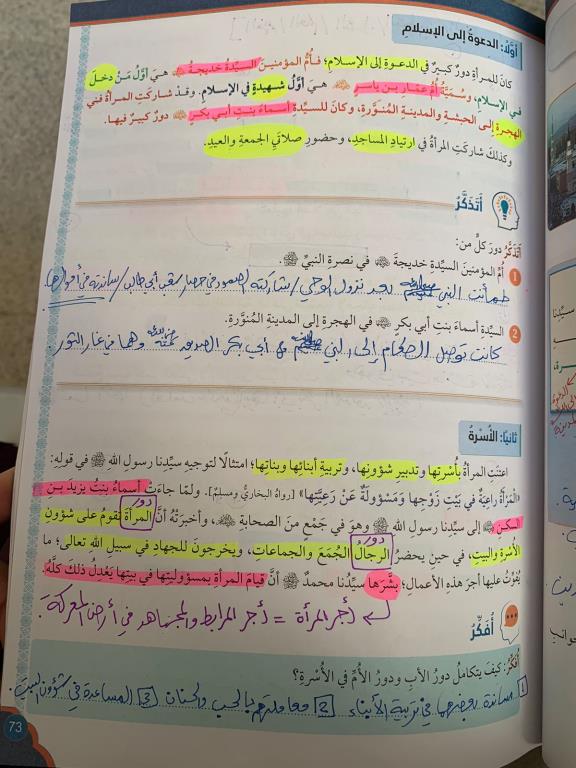 أوّلًا: الدعوةُ إلى الإسلامِ
كانَ للمرأةِ دورٌ كبيرٌ في الدعوةِ إلى الإسلامِ؛ فأُمُّ المؤمنينَ السيّدةُ خديجةُ هيَ أوَّلُ مَنْ دخلَ
في الإسلامِ، وسُمَيَّةُ أُمُّ عمّارِ بنِ ياسرٍ هيَ أوَّلُ شهيدةٍ في الإسلامِ. وقدْ شاركَتِ المرأةُ في
الهجرةِ إلى الحبشةِ والمدينةِ المُنَوَّرةِ، وكانَ للسيّدةِ أسماءَ بنتِ أبي بكرٍ دورٌ كبيرٌ فيها.
وكذلكَ شاركَتِ المرأةُ في ارتيادِ المساجدِ، وحضورِ صلاتَيِ الجمعةِ والعيدِ.
أَتَذَكَّرُ
أَتَذَكَّرُ دورَ كلٍّ من:
1 أُمُّ المؤمنينَ السيّدةِ خديجةَ في نصرةِ النبيِّ ﷺ.
طمأنت النبي ﷺ بعد نزول الوحي / شاركته الصمود في حصار شعب أبي طالب / ساندته في أموالها
2 السيّدةِ أسماءَ بنتِ أبي بكرٍ في الهجرةِ إلى المدينةِ المُنَوَّرةِ.
كانت توصل الطعام إلى النبي ﷺ و أبي بكر الصديق وهما في غار الثور.
ثانيًا: الأُسْرةُ
اعتنَتِ المرأةُ بأُسْرتِها وتدبيرِ شؤونِها، وتربيةِ أبنائِها وبناتِها؛ امتثالًا لتوجيهِ سيِّدِنا رسولِ اللهِ ﷺ في قولِهِ:
«الْمَرْأَةُ رَاعِيَةٌ فِي بَيْتِ زَوْجِهَا وَمَسْؤولَةٌ عَنْ رَعِيَّتِهَا» [رواهُ البخاريُّ ومسلمٌ]. ولمّا جاءَتْ أسماءُ بنتُ يزيدَ بنِ
دور
السكنِ إلى سيِّدِنا رسولِ اللهِ ﷺ وهوَ في جَمْعٍ منَ الصحابةِ، وأخبرَتْهُ أنَّ المرأةَ تقومُ على شؤونِ
دور
الأُسْرةِ والبيتِ، في حينِ يحضرُ الرجالُ الجُمَعَ والجماعاتِ، ويخرجونَ للجهادِ في سبيلِ اللهِ تعالى؛ ما
يُفَوِّتُ عليها أجرَ هذهِ الأعمالِ؛ بشَّرَها سيِّدُنا محمدٌ ﷺ أنَّ قيامَ المرأةِ بمسؤوليّتِها في بيتِها يَعْدِلُ ذلكَ كلَّهُ.
أجر المرأة = أجر المرابط والمجاهد في أرض المعركة.
أُفَكِّرُ
أُفَكِّرُ: كيفَ يتكاملُ دورُ الأبِ ودورُ الأُمِّ في الأُسْرةِ؟
1 مساندة بعضهما في تربية الأبناء 2 معاملتهم بالحب والحنان 3 المساعدة في شؤون البيت.
73